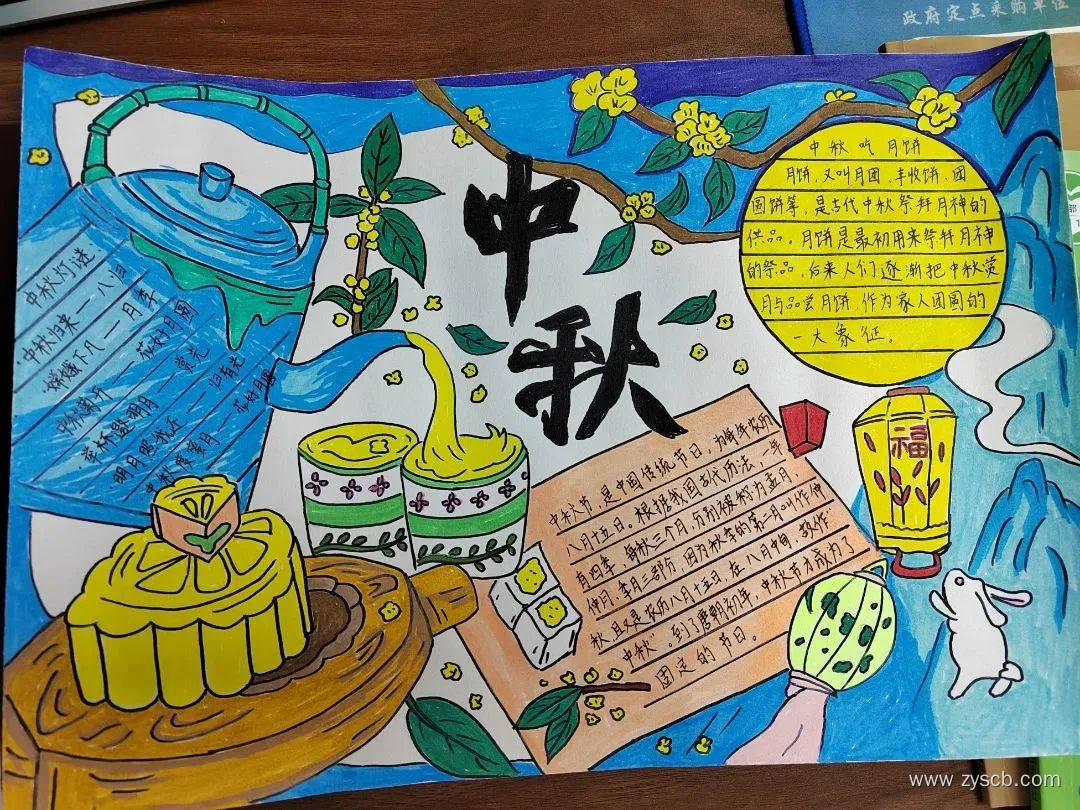 政府定点采购单位
中秋
中秋吃月饼
月饼，又叫月团、丰收饼、团
圆饼等，是古代中秋祭拜月神的
供品。月饼是最初用来祭拜月神
的祭品，后来人们逐渐把中秋赏
月与品尝月饼，作为家人团圆的
一大象征。
中秋灯谜
中秋归来 — 八归
嫦娥下凡 — 月季
中秋菊开 — 花好月圆
举杯邀明月 — 赏光
明月照我还 — 归有光
中秋度蜜月 — 花好月圆
中秋节，是中国传统节日，为每年农历
八月十五日。根据我国古代历法，一年
有四季，每秋三个月，分别被称为孟月
仲月、季月三部分，因为秋季的第二月叫作仲
秋，且又是农历八月十五日，在八月中旬，故作"
中秋"。到了唐朝初年，中秋节才成为了
固定的节日。
福
www.zyscb.com